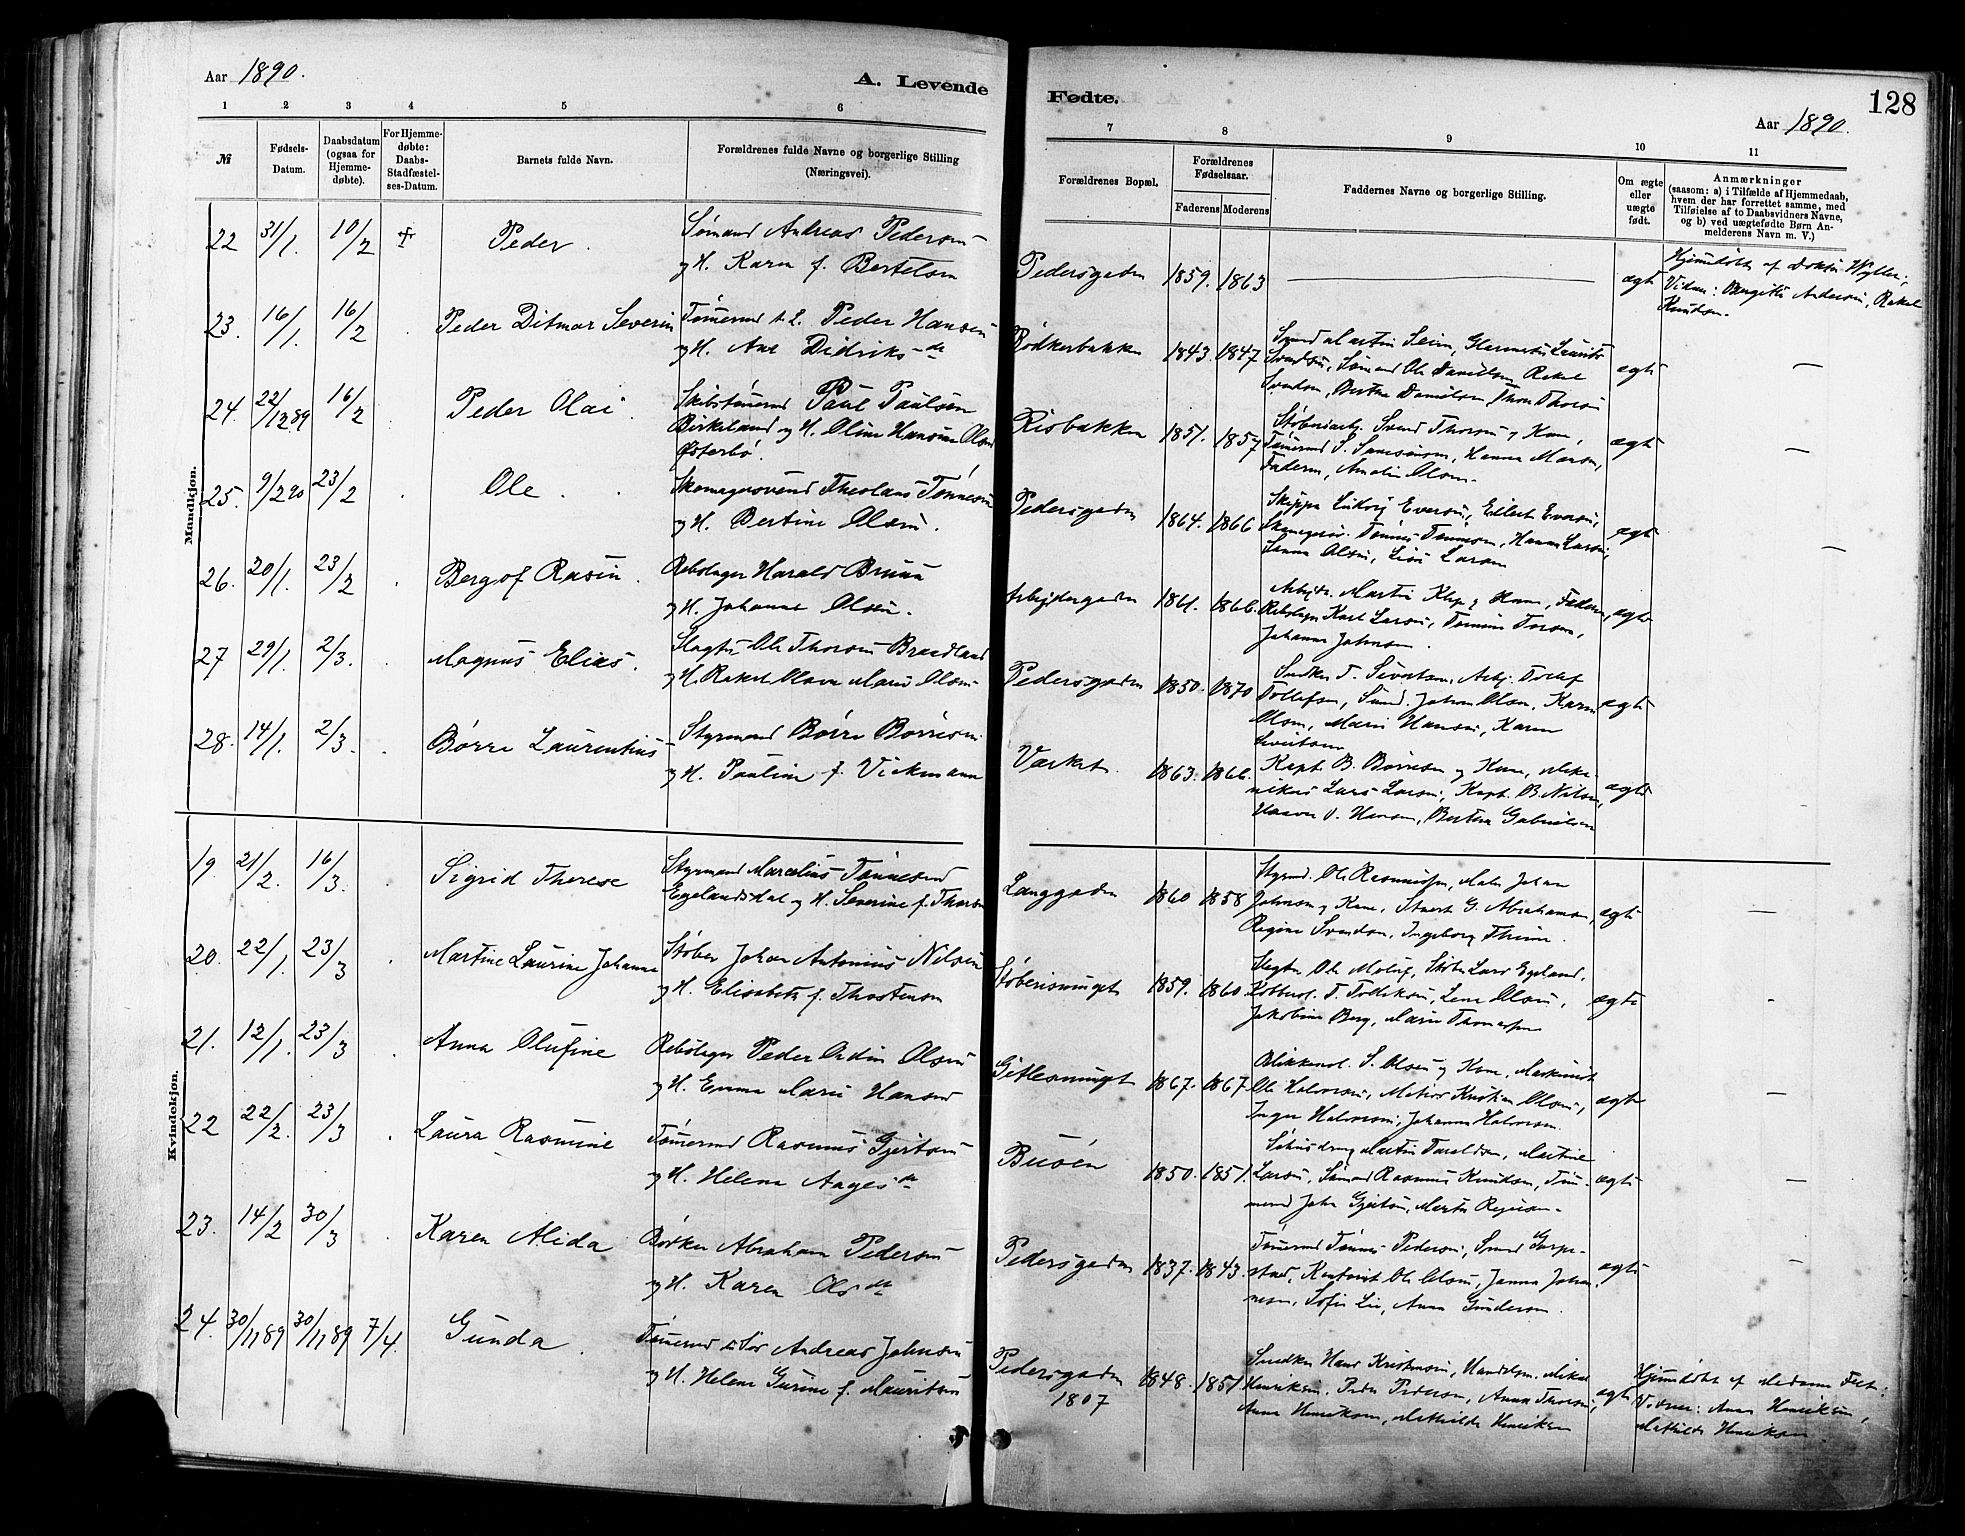 Aar 1890.
A. Levende
1 2 3 4 5 6
№
Fødsels-
Datum.
Daabsdatum
(ogsaa for
Hjemme-
døbte).
For Hjemme-
døbte:
Daabs-
Stadfæstel-
ses-Datum.
Barnets fulde Navn.
Forældrenes fulde Navne og borgerlige Stilling
(Næringsvei).
Mandkjøn.
22 31/1. 10/2 Peder. Sømand Andreas Pedersen
og H. Karen f. Bertelsen
23. 16/1. 16/2 Peder Ditmar Severin Tømermd Peder Hansen
og H. Ane Didriksdr
24. 22/12 89 16/2 Peder Olai. Skibstømermd Paul Paulsen
Birkeland og H. Oline Hansine Olsen
Østerbø.
25. 9/2 90 23/2 Ole. Skomagersvend Theolaus Tønnesen
og H. Bertine Olsen.
26. 20/1. 23/2 Bergof Rasin. Rebslager Harald Bruun
og H. Johanne Olsen.
27 29/1. 2/3. Magnus Elias. Slagter Ole Thorsen Braadland
og H. Rakel Olava Marie Olsen
28. 14/1. 2/3. Børre Laurentius Styrmand Børre Børresen
og H. Pauline f. Vickmann
Kvindekjøn.
19. 21/2. 16/3. Sigrid Therese Styrmand Marcelius Tønnesen
Egelandsdal og H. Severine f. Thorsen
20. 22/1. 23/3 Martine Laurine Johanne Støber Johan Antonius Nilsen
og H. Elisabeth f. Thorstensen
21. 12/1. 23/3 Anna Olufine Rebslager Peder Odin Olsen
og H. Emma Marie Hansen
22 22/2. 23/3 Laura Rasmine Tømermd Rasmus Gjertsen
og H. Helene Aagesdr
23. 14/2 30/3 Karen Alida Bødker Abraham Pedersen
og H. Karen Olsdr
24. 30/11 89 30/11 89 7/4. Gunda. Tømermd Andreas Johnsen
og H. Helene Gurine f. Mauritsen
Fødte.
128
Aar 1890.
7 8 9 10 11
Forældrenes Bopæl.
Forældrenes
Fødselsaar.
Faderens Moderens
Faddernes Navne og borgerlige Stilling.
Om ægte
eller
uægte
født.
Anmærkninger
(saasom: a) i Tilfælde af Hjemmedaab,
hvem der har forrettet samme, med
Tilføielse af to Daabsvidners Navne,
og b) ved uægtefødte Børn An-
melderens Navn m. V.)
Pedersgaden 1859. 1863 ægte Hjemmedøbt af Doktor Wyller;
Vidner: Bergitte Andersen, Rakel
Knudsen.
Bødkerbakken 1843. 1847 Smed Martin Seim, Glarmester Laurits
Svendsen, Sømand Ole Danielsen, Rakel
Svendsen, Berthe Danielsen, Thorsen ægte —
Risbakken 1851. 1857 Støberiarb. Svend Thorsen og Kone,
Tømermd S. Samsonsen, Hanna Larsen,
Faderen, Amalie Olsen. ægte —
Pedersgaden 1864. 1866 Skipper Ludvig Eversen, Eilert Eversen,
Skomagersv. Tønnes Tønnesen, Hanna Larsen,
Lanna Olsen, Lise Larsen ægte —
Arbeidergaden 1861. 1866. Arbeider Martin Klep og Kone, Faderen,
Rebslager Karl Larsen, Tomine Torsen,
Johanne Johnsen. ægte
Pedersgaden 1850. 1870 Snedker T. Sivertsen, Arb. Tollef
Tollefsen, Smed Johan Olsen, Karen
Olsen, Marie Hansen, Karen
Sivertsen ægte
Værket. 1863. 1866. Kapt. B. Børresen og Kone, Meka-
nikus Lars Larsen, Kapt. B. Nilsen,
H. Hansen, Bertha Gabrielsen ægte —
Langgaden 1860 1858 Styrmd. Ole Rasmussen, Maler Johan
Johnsen og Kone, Stuert G. Abrahamsen,
Regine Svendsen, Ingeborg Thime. ægte —
Støberismuget 1859. 1860. Slagter Ole Moluf, Støber Lars Egeland,
Kobbersl. T. Tollefsen, Lene Olsen,
Jakobine Berg, Marie Thomassen ægte -
Gitlesmuget 1867. 1867. Blikkensl. S. Olsen og Kone, Maskinist
Ole Halvorsen, Matros Kristian Olsen,
Inger Halvorsen, Johanna Halvorsen. ægte —
Buøen 1850. 1851. Martin Taraldsen, Martine
Larsen, Sømand Rasmus Knutsen, Tøm-
mermd John Gjertsen, Marta ægte —
Pedersgaden 1837. 1843. Tømermd Tønnes Pedersen, Smed Gaspe-
stad, Kontorist Ole Olsen, Janna Johan-
nesen, Sofie Lie, Anna Gundersen. ægte —
Pedersgaden
1807 1848. 1851 Snedker Hans Kristensen, Handelsm. Mikal
Henriksen, Peder Pedersen, Anna Thorsen,
Anna Henriksen, Mathilde Henriksen ægte Hjemmedøbt af Madame Feet:
Vidner: Anna Henriksen,
Mathilde Henriksen.